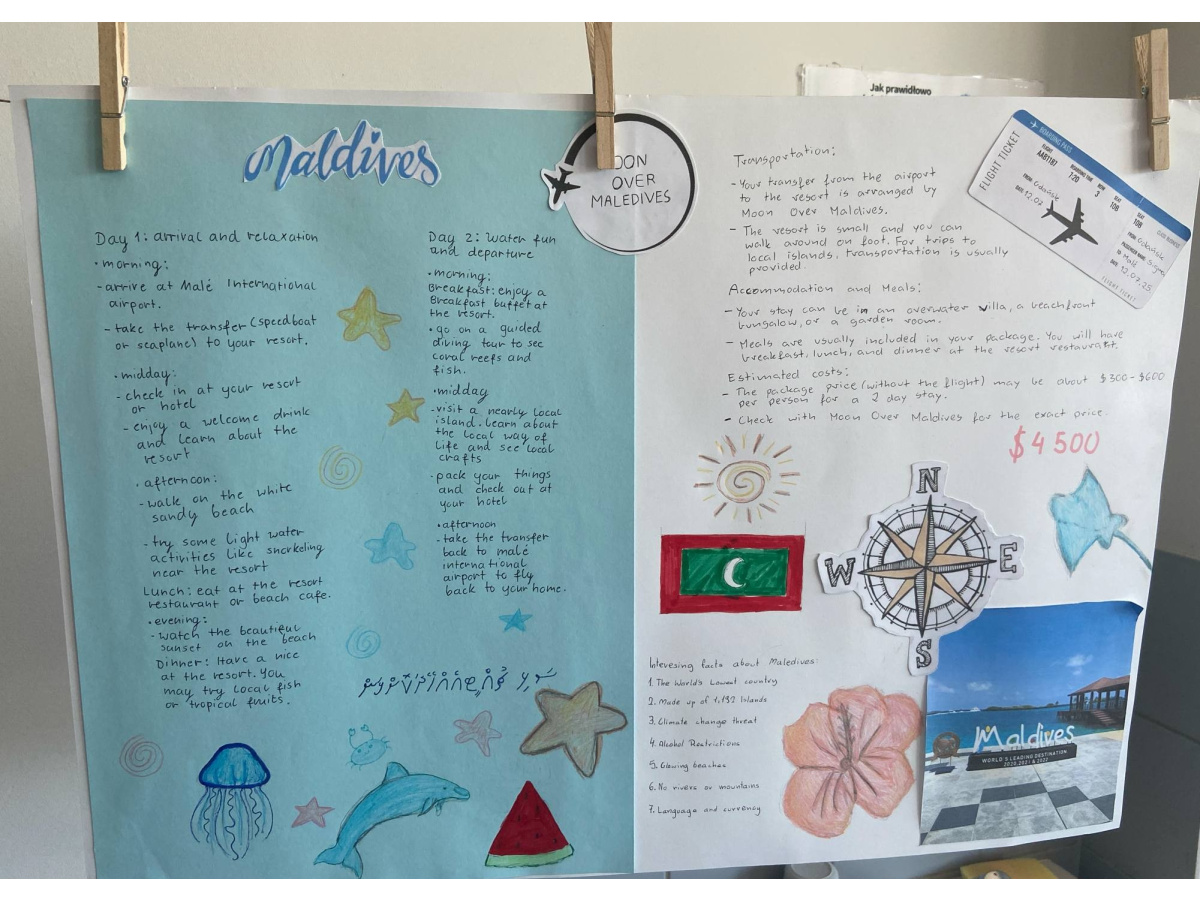 Jak prawidłowo
Maldives
Day 1: arrival and relaxation
• morning:
- arrive at Malé International
airport.
- take the transfer (speedboat
or scaplane) to your resort.
• midday:
- check in at your resort
or hotel
- enjoy a welcome drink
and learn about the
resort
. afternoon:
- walk on the white
sandy beach
- try some light water
activities like snorkeling
near the resort
Lunch: eat at the resort
restaurant or beach cafe.
• evening:
- watch the beautiful
sunset on the beach
Dinner: Have a nice
at the resort. You
may try local fish
or tropical fruits.
Day 2: water fun
and departure
• morning:
Breakfast: enjoy a
Breakfast buffet at
the resort.
• go on a guided
diving tour to see
coral reefs and
fish.
• midday
- visit a nearly local
island. Learn about
the local way of
life and see local
crafts
- pack your things
and check out at
your hotel
• afternoon
- take the transfer
back to malé
international
airport to fly
back to your home.
OON
OVER
MALEDIVES
Transportation:
- Your transfer from the airport
to the resort is arranged by
Moon Over Maldives.
- The resort is small and you can
walk around on foot. For trips to
local islands, transportation is usually
provided.
Accommodation and Meals:
- Your stay can be in an overwater villa, a beachfront
bungalow, or a garden room.
- Meals are usually included in your package. You will have
breakfast, lunch, and dinner at the resort restaurant.
Estimated costs:
- The package price (without the flight) may be about $300-$600
per person for a 2 day stay.
- Check with Moon Over Maldives for the exact price.
$4 500
FLIGHT TICKET
BOARDING PASS
FLIGHT
AAB1197
BOARDING TIME
1:20
3
SEAT
10B
FROM: Gdańsk
DATE: 12.07
SEAT
10B
FROM: Gdańsk
PASSENGER NAME
TO: Malé
DATE: 12.07.25
FLIGHT TICKET
N
W
E
S
Interesing facts about Maledives:
1. The World's Lowest country
2. Made up of 1,192 Islands
3. Climate change threat
4. Alcohol Restrictions
5. Glowing beaches
6. No rivers or mountains
7. Language and currency
Maldives
WORLD'S LEADING DESTINATION
2020, 2021 & 2022